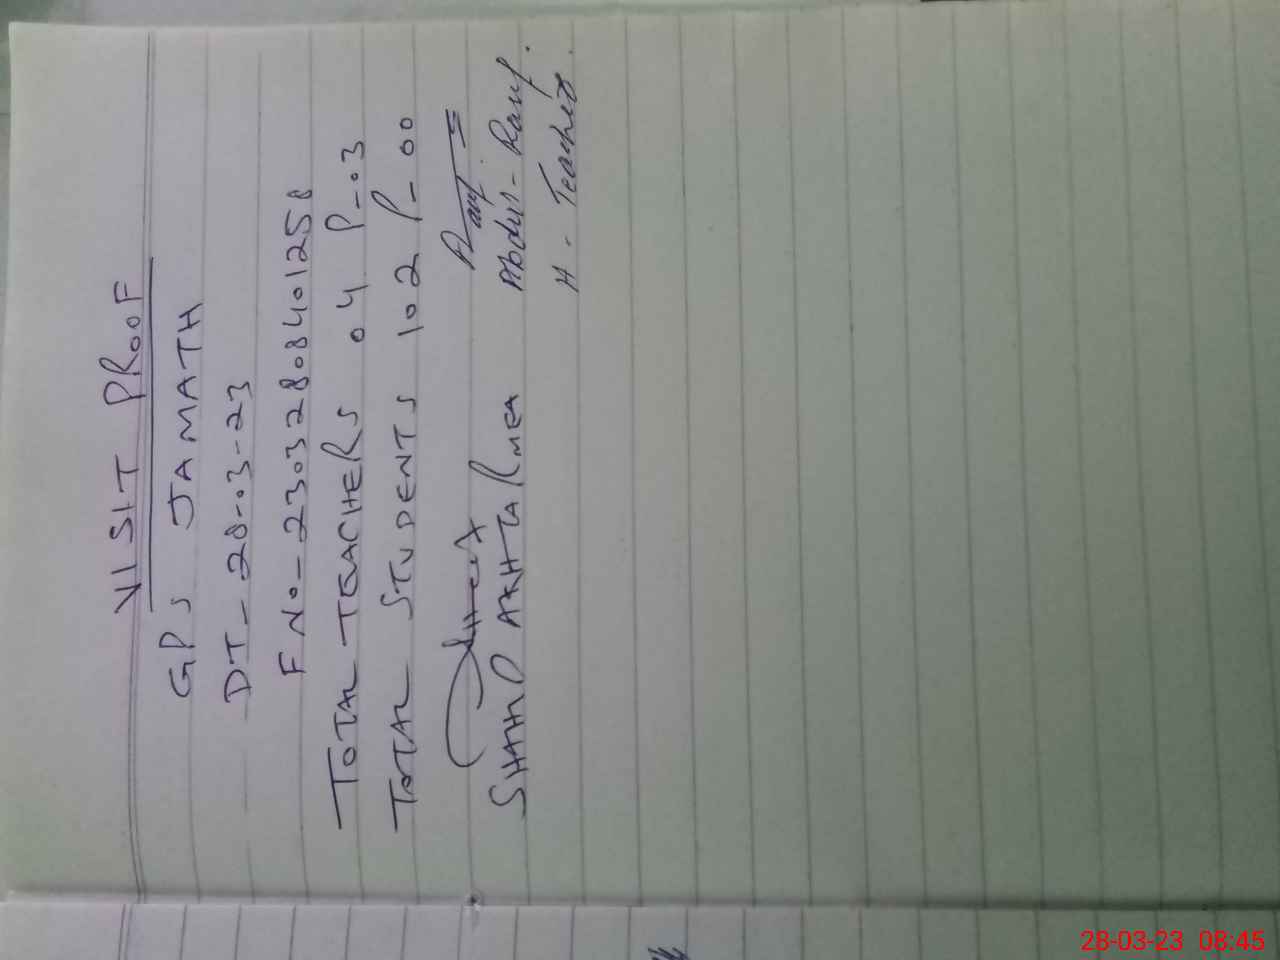 VISIT PROOF
GPS JAMATH
DT_28-03-23
F No_ 23032808401258
TOTAL TEACHERS 04 P_03
TOTAL STUDENTS 102 P_00
Rauf
SHAHID AKHTAR MEA Abdul-Rauf.
H-Teacher.
28-03-23 08:45